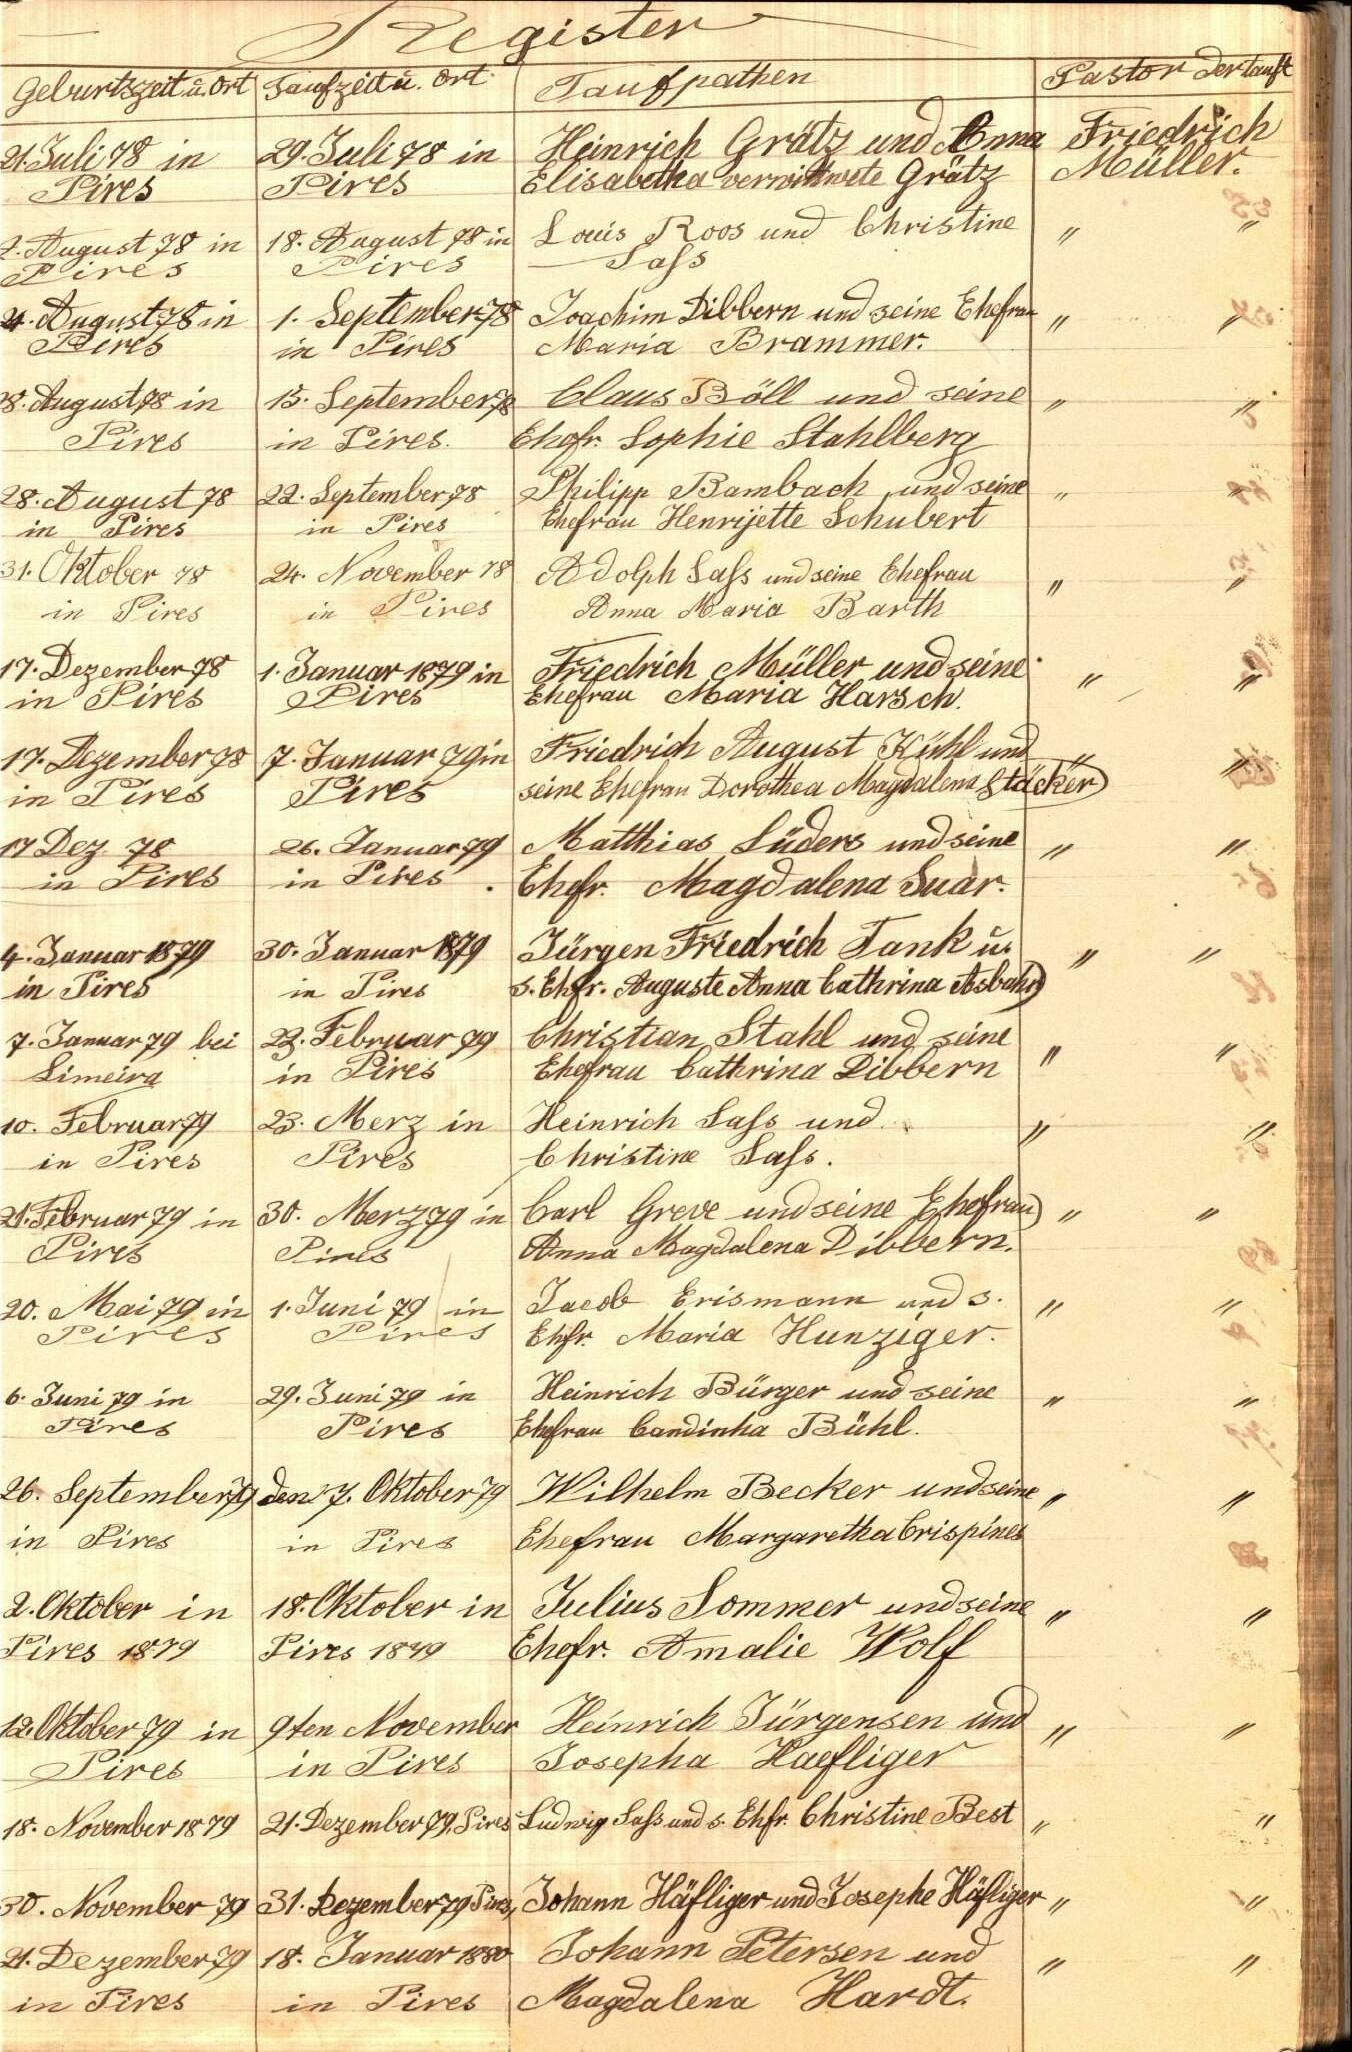 Register
Geburtszeit u. Ort Taufzeit u. Ort Taufpathen Pastor der Tauft
21. Juli 78 in 29. Juli 78 in Heinrich Grätz und Anna Friedrich
Pires Pires Elisabetha verwittwete Grätz Müller.
August 78 in 18. August 78 in Louis Roos und Christine " "
Pires Pires Sass
24. August 78 in 1. September 78 Joachim Dibbern und seine Ehefrau " "
Pires in Pires Maria Brammer.
28. August 78 in 15. September 78 Claus Böll und seine " "
Pires in Pires. Ehefr. Sophie Stahlberg
28. August 78 22. September 78 Philipp Bambach und seine " "
in Pires in Pires Ehefrau Henrijette Schubert
31. Oktober 78 24. November 78 Adolph Sass und seine Ehefrau " "
in Pires in Pires Anna Maria Barth
17. Dezember 78 1. Januar 1879 in Friedrich Müller und seine " "
in Pires Pires Ehefrau Maria Harsch.
17. Dezember 78 7. Januar 79 in Friedrich August Kühl und " "
in Pires Pires seine Ehefrau Dorothea Magdalena Stäcker
17 Dez. 78 26. Januar 79 Matthias Lüders und seine " "
in Pires in Pires. Ehefr. Magdalena Suar.
4. Januar 1879 30. Januar 1879 Jürgen Friedrich Tank u. " "
in Pires in Pires s. Ehfr. Auguste Anna Cathrina Asbahr
7. Januar 79 bei 23. Februar 79 Christian Stahl und seine " "
Limeira in Pires Ehefrau Cathrina Dibbern
10. Februar 79 23. Merz in Heinrich Sass und " "
in Pires Pires Christine Sass.
21. Februar 79 in 30. Merz 79 in Carl Greve und seine Ehefrau " "
Pires Pires Anna Magdalena Dibbern.
20. Mai 79 in 1. Juni 79 in Jacob Erismann und s. " "
Pires Pires Ehfr. Maria Hunziger.
6. Juni 79 in 29. Juni 79 in Heinrich Bürger und seine " "
Pires Pires Ehefrau Candinha Bühl.
26. September 79 den 7. Oktober 79 Wilhelm Becker und seine " "
in Pires in Pires Ehefrau Margaretha Crispines
2. Oktober in 18. Oktober in Julius Sommer und seine " "
Pires 1879 Pires 1879 Ehefr. Amalie Wolf
12. Oktober 79 in 9ten November Heinrich Jürgensen und " "
Pires in Pires Josepha Haefliger
18. November 1879 21. Dezember 79, Pires Ludwig Sass und s. Ehfr. Christine Best " "
30. November 79 31. Dezember 79 Pires, Johann Häfliger und Josephe Häfliger " "
21. Dezember 79 18. Januar 1880 Johann Petersen und " "
in Pires in Pires Magdalena Hardt.